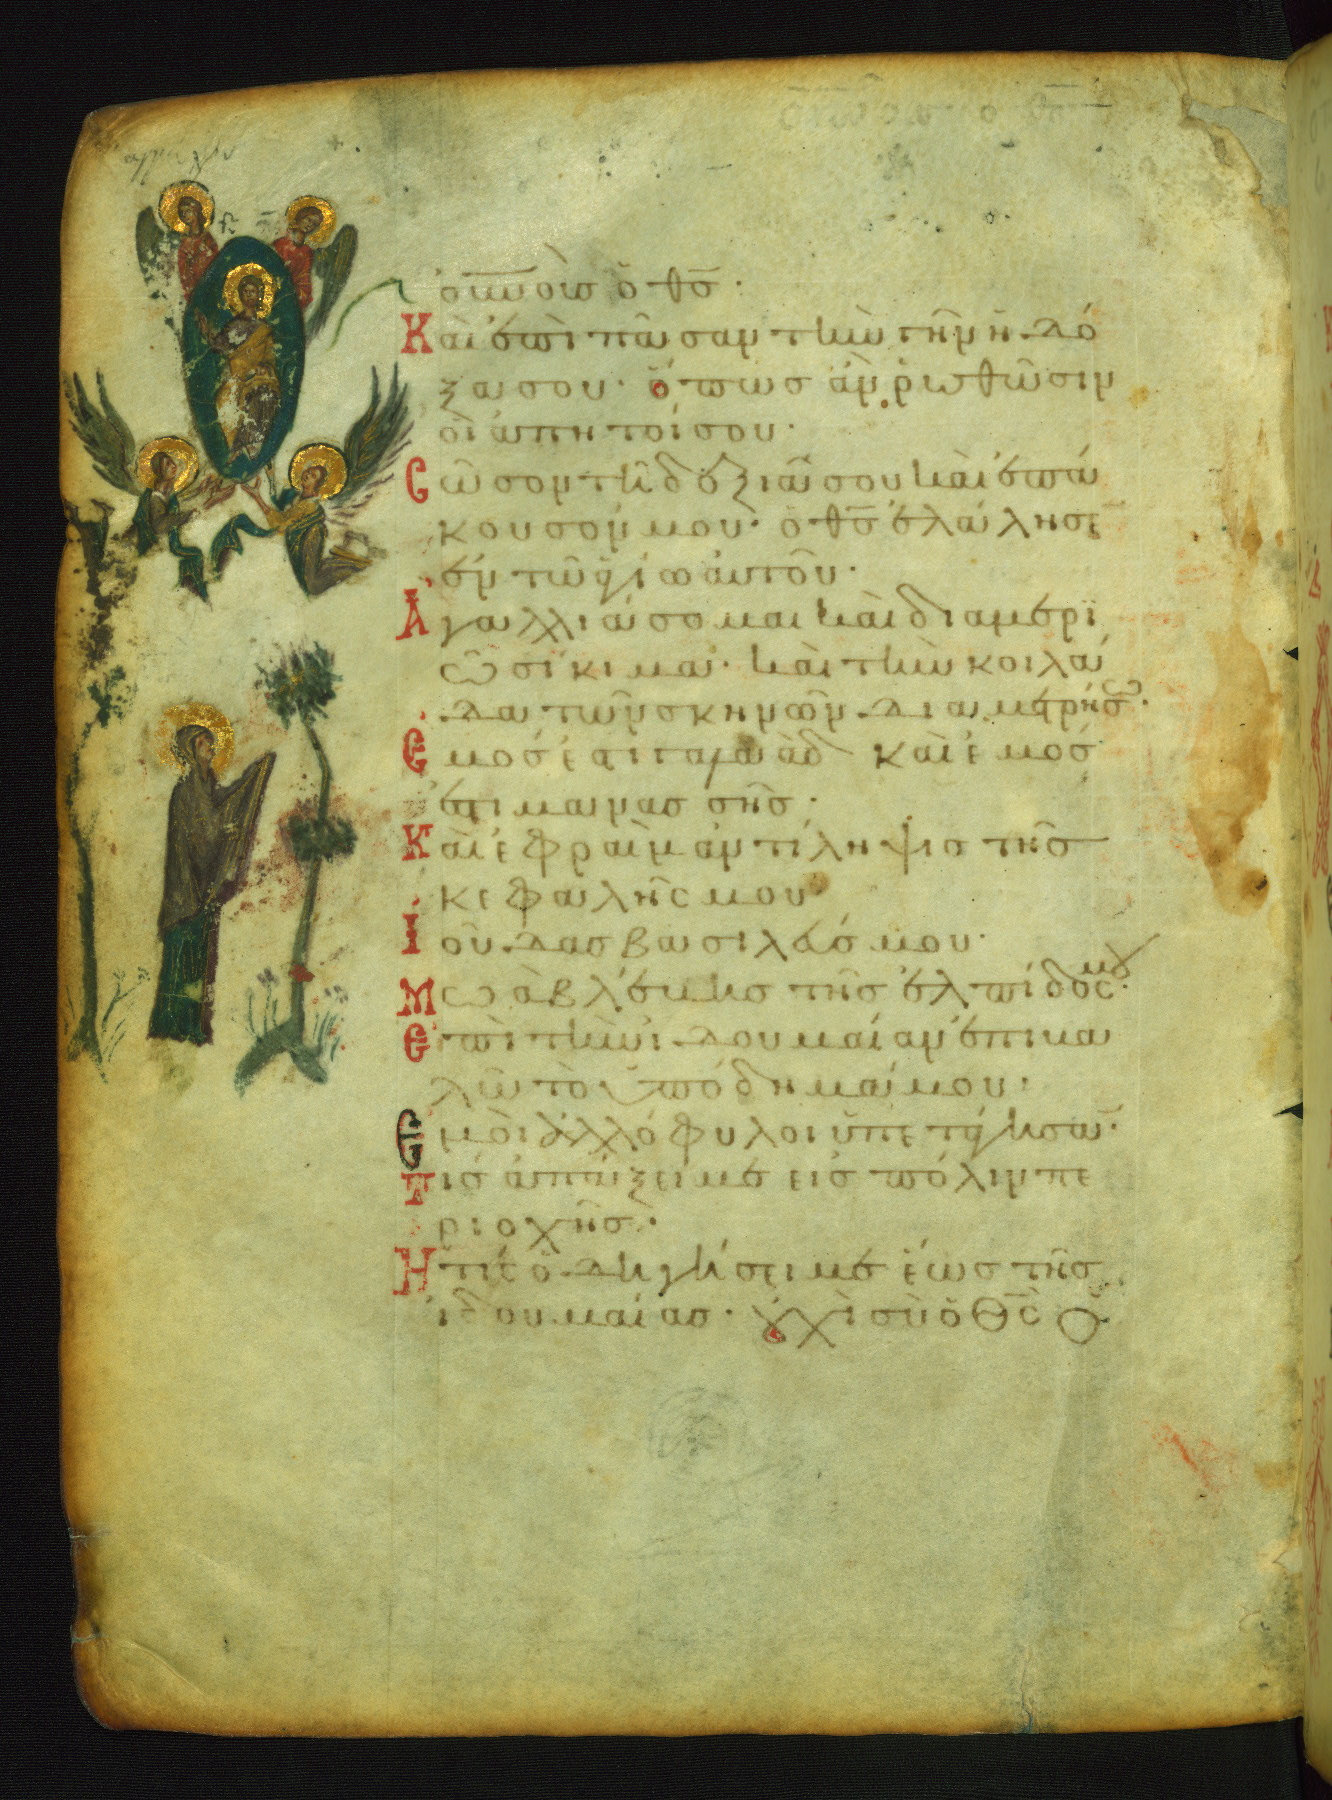 ὀυνοὺσ ὁ θ̅σ̅·
Κ αὶ ἐπὶ πᾶσαν τὴν γῆν ἡ δό
ξα σου· ὅπωσ ἂν ῥυσθῶσιν
οἱ ἀγαπητοί σου·
С ῶσον τῆ δεξιᾶ σου καὶ ἐπά
κουσόν μου· ὁ θ̅σ̅ ἐλάλησε
ἐν τῶ ἁγίω ἀυτοῦ·
Ἀ γαλλιάσομαι καὶ διαμερι
ῶ σίκιμα· καὶ τὴν κοιλά
δα τῶν σκηνῶν διαμετρήσω·
Ἐ μόσ ἐστι γαλαὰδ καὶ ἐμόσ
ἐστι μανασσῆσ·
Κ αὶ ἐφραὶμ ἀντίληψισ τῆσ
κεφαλῆς μου
Ἰ ούδασ βασιλεύσ μου·
Μ ωὰβ λέβησ τῆσ ἐλπίδος μου·
Ἐ πὶ τὴν ἰδουμαίαν ἐπιβα
λῶ τὸ ὑπόδημά μου·
Ἐ μοὶ ἀλλόφυλοι ὑπετάγησαν·
Τ ίσ ἀπάξει με εἰσ πόλιν πε
ριοχῆσ·
Ἢ τίς ὁδηγήσει με ἕωσ τῆσ
ἰδουμαίασ· οὐχὶ σὺ ὁ Θ̅C̅ Ο